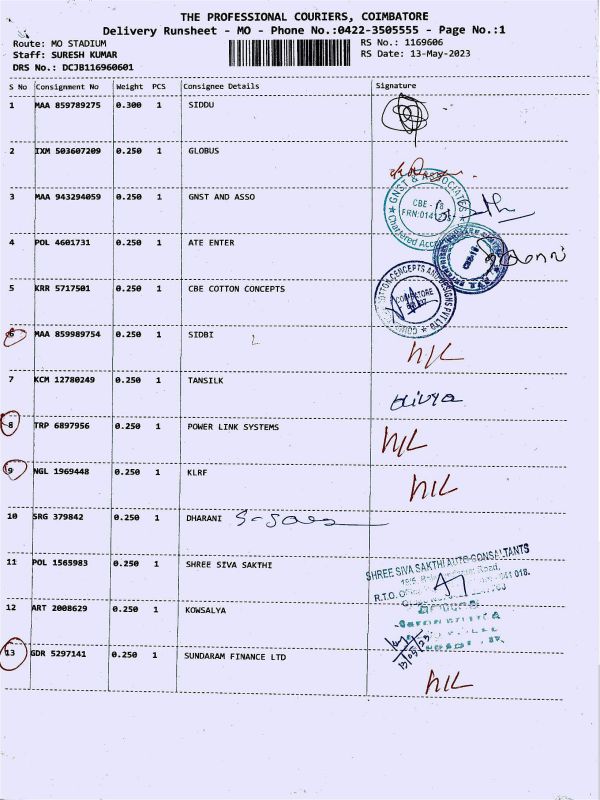 THE PROFESSIONAL COURIERS, COIMBATORE
Delivery Runsheet - MO - Phone No.:0422-3505555 - Page No.:1
Route: MO STADIUM
RS No.: 1169606
Staff: SURESH KUMAR
RS Date: 13-May-2023
DRS No.: DCJB116960601
S No Consignment No Weight PCS Consignee Details Signature
1 MAA 859789275 0.300 1 SIDDU
2 IXM 503607209 0.250 1 GLOBUS
3 MAA 943294059 0.250 1 GNST AND ASSO
GNST & ASSOCIATES
CBE - 18
Chartered Acc
4 POL 4601731 0.250 1 ATE ENTER
5 KRR 5717501 0.250 1 CBE COTTON CONCEPTS
COTTON CONCEPTS AND DESIGNS PVT LTD
COIMBATORE
6 MAA 859989754 0.250 1 SIDBI
N/L
7 KCM 12780249 0.250 1 TANSILK divya
8 TRP 6897956 0.250 1 POWER LINK SYSTEMS N/L
9 NGL 1969448 0.250 1 KLRF N/L
10 SRG 379842 0.250 1 DHARANI
11 POL 1565983 0.250 1 SHREE SIVA SAKTHI
SHREE SIVA SAKTHI AUTO CONSALTANTS
Road,
R.T.O. 641 018.
12 ART 2008629 0.250 1 KOWSALYA
13/05/23
13 GDR 5297141 0.250 1 SUNDARAM FINANCE LTD
N/L